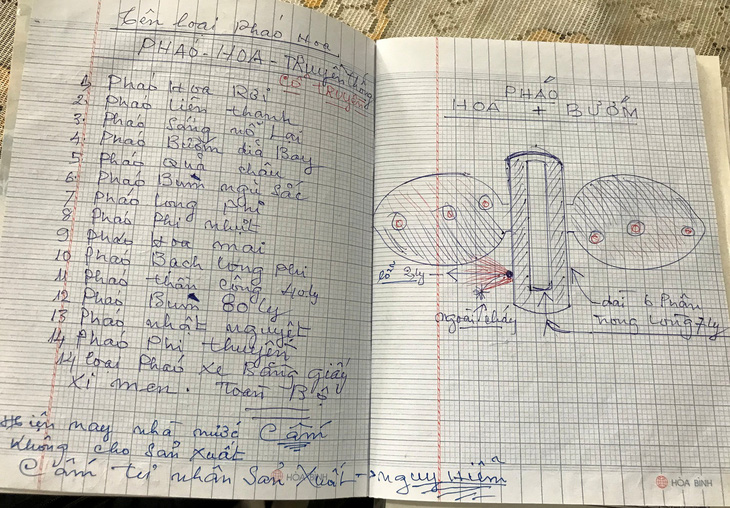 Tên loại Pháo Hoa
PHÁO - HOA - TRUYỀN thống
Cổ TRUYỀN
1 Pháo Hoa Rơi
2. Pháo liên thanh
3. Pháo Sáng nổ Lai
4. Pháo Bướm đĩa Bay
5 Pháo quả châu
6. Pháo Bum ngũ sắc
7 Pháo Long phi
8 Pháo phi nhứt
9 Pháo Hoa mai
10 Pháo Bạch Long phi
11 Pháo thần công 40 ly
12 Pháo Bum 80 ly
13 Pháo nhật nguyệt
14 Pháo Phi thuyền
14 loại Pháo xe Bằng giấy
xi men. Toàn Bộ
Hiện nay nhà nước Cấm
không cho Sản xuất
Cấm tư nhân Sản xuất → nguy Hiểm
HÒA BÌNH
PHÁO
HOA + BƯỚM
lỗ 2 ly
ngoài cháy
dài 6 Phân
nong Lòng 7 ly
HÒA BÌNH